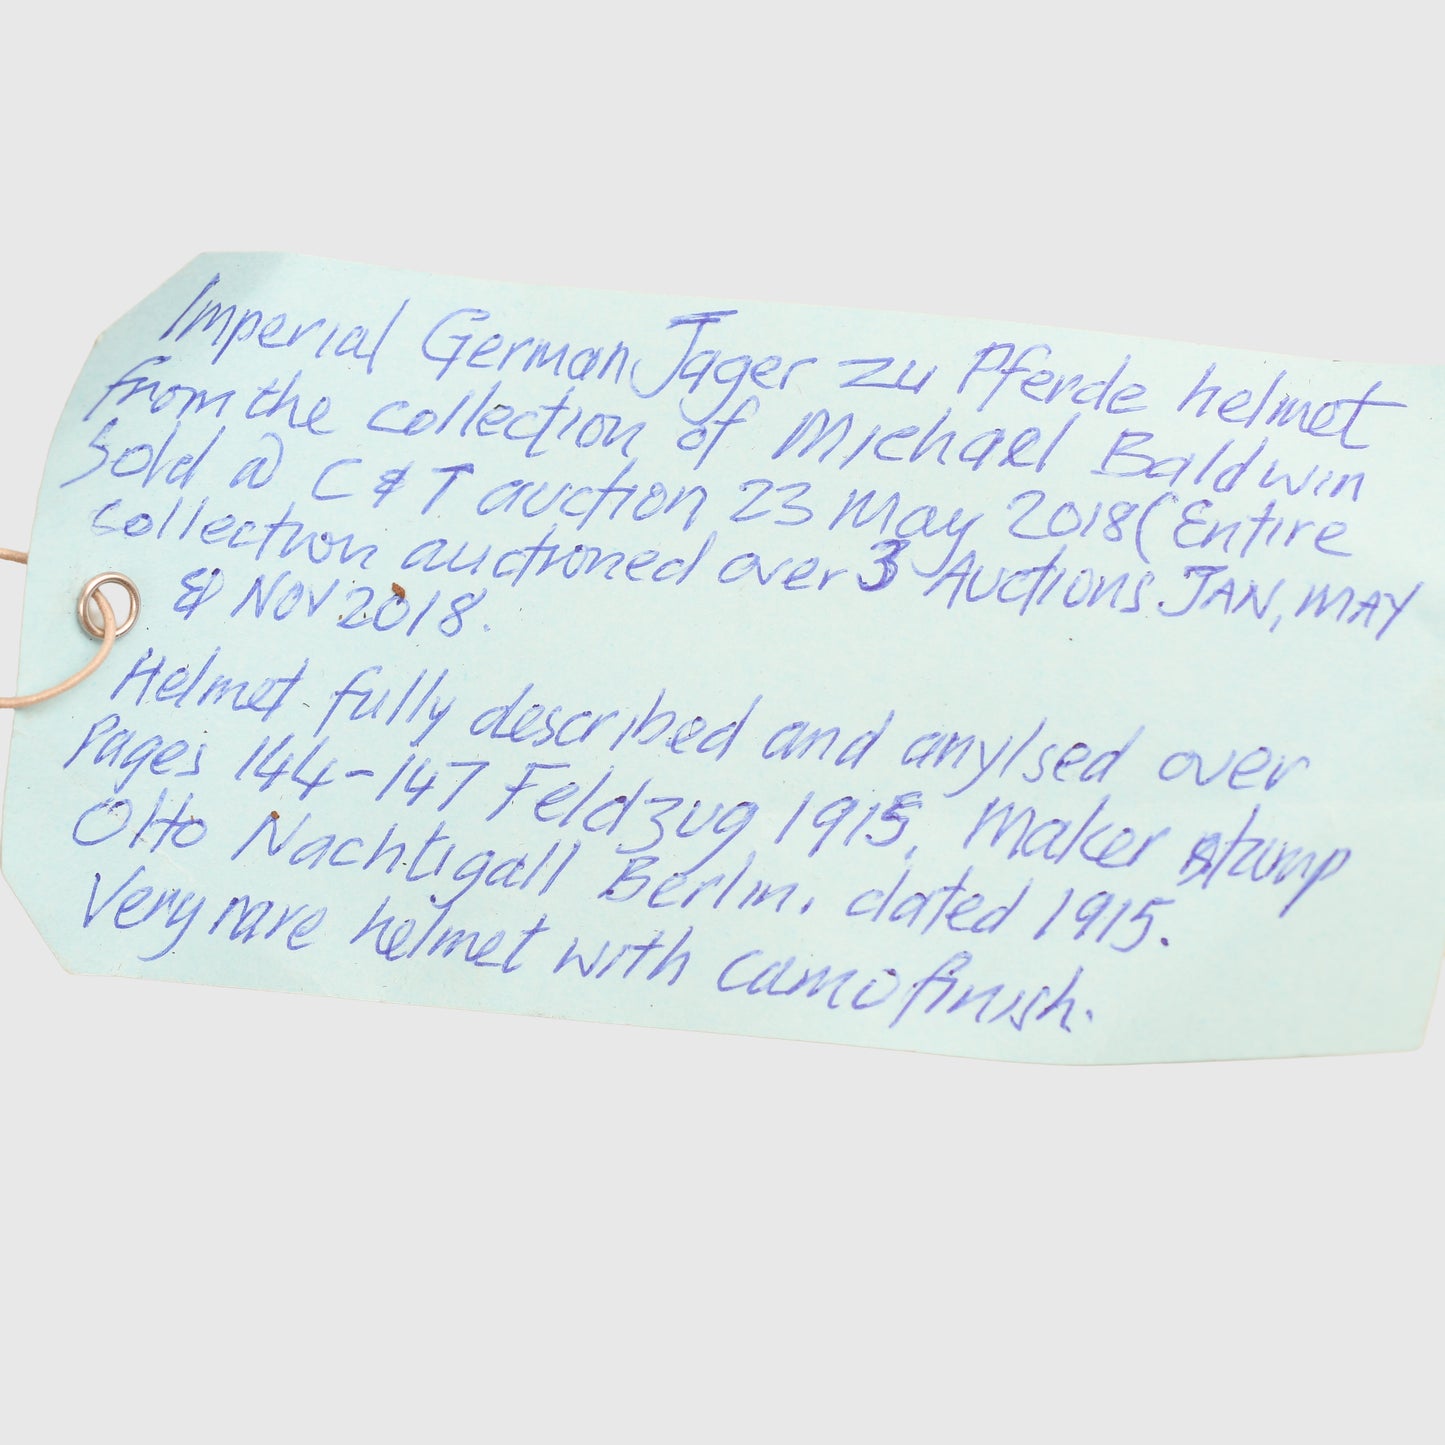 Imperial German Jager zu Pferde helmet
from the collection of Michael Baldwin
Sold @ C & T auction 23 May 2018 (Entire
collection auctioned over 3 Auctions JAN, MAY
& NOV 2018.
Helmet fully described and anylsed over
Pages 144-147 Feldzug 1915. Maker stamp
Otto Nachtigall Berlin. dated 1915.
Very rare helmet with camo finish.